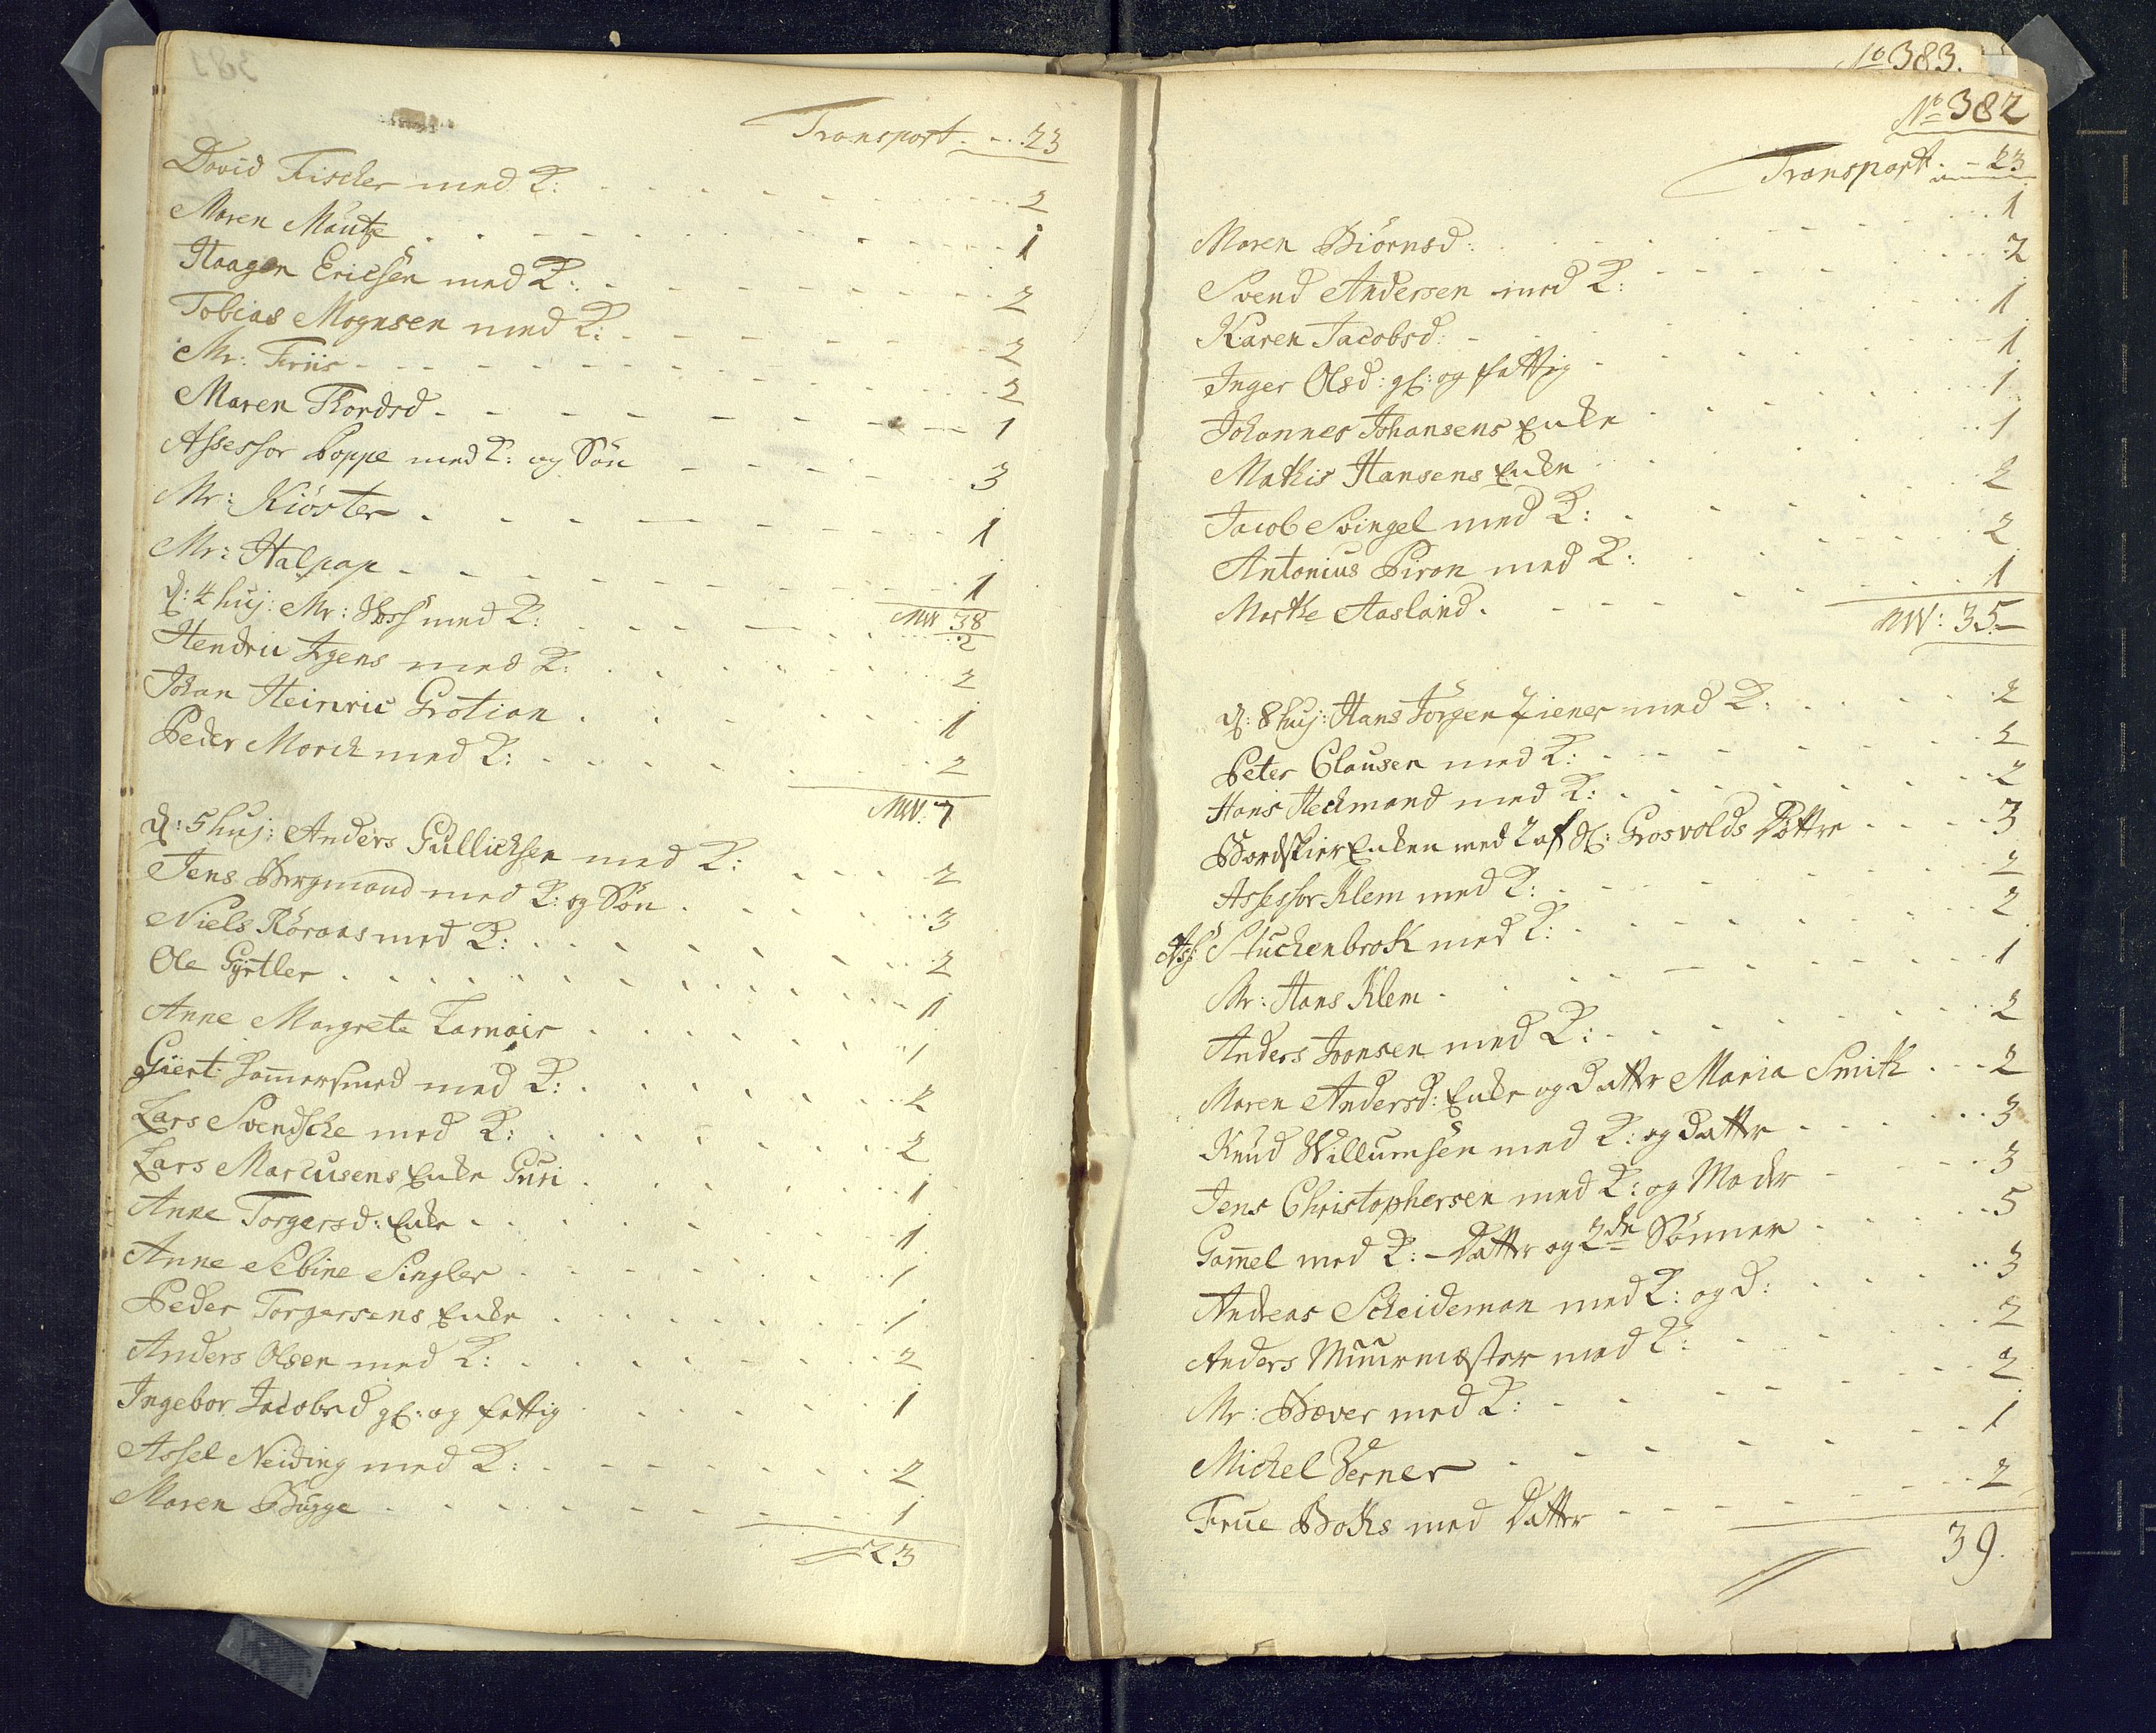 Transport - - 23
David Fischer med K: 2
Maren Mautze 1
Haagen Ericksen med K: 2
Tobias Mognsen med K: 2
Mr: Friis 2
Maren Thordsd 1
Assessor Poppe med K: og Sön 3
Mr: Kiöster 1
Mr: Halpap 1
38
d: 4 huj: Mr: Voss med K: 2
Hendric Irgens med K: 2
Johan Heinric Grotian 1
Peder Morch med K: 2
7
d: 5 huj: Anders Gullichsen med K: 2
Jens Bergmand med K: og Sön 3
Niels Röraas med K: 2
Ole Gÿrtler 1
Anne Margrete Larnair 1
Giert Hammersmed med K: 2
Lars Svendsche med K: 2
Lars Marcusens Enke Guri 1
Anne Torgersd: Enke 1
Anne Sebine Singler 1
Peder Torgersens Enke 1
Anders Olsen med K: 2
Ingebor Jacobsd gl: og fattig 1
Assel Neiding med K: 2
Maren Bugge 1
23
No 383.
No 382
Transport - - 23
Maren Biörnsd: 1
Svend Andersen med K: 2
Karen Jacobsd: 1
Inger Olsd: gl: og fattig 1
Johannes Johansens Enke 1
Mathis Hansens Enke 1
Jacob Svingel med K: 2
Antonius Piron med K: 2
Marthe Aasland 1
35
d: 8 huj: Hans Jörgen Ziener med K: 2
Peter Clausen med K: 2
Hans Heckmand med K: 2
Bordskier Enken med 2 af Sl: Grosvolds Döttre 3
Assessor Klem med K: 2
Ass: Stuckenbrok med K: 2
Mr: Hans Klem 1
Anders Joensen med K: 2
Maren Andersd: Enke og Datter Maria Smith 2
Knud Willumsen med K: og Datter 3
Jens Christophersen med K: og Moder 3
Gammel med K: Datter og 2de Sönner 5
Andreas Scheideman med K: og D: 3
Anders Muurmester med K: 2
Mr: Bæver med K: 2
Michel Verner 1
Frue Boths med Datter 2
39.